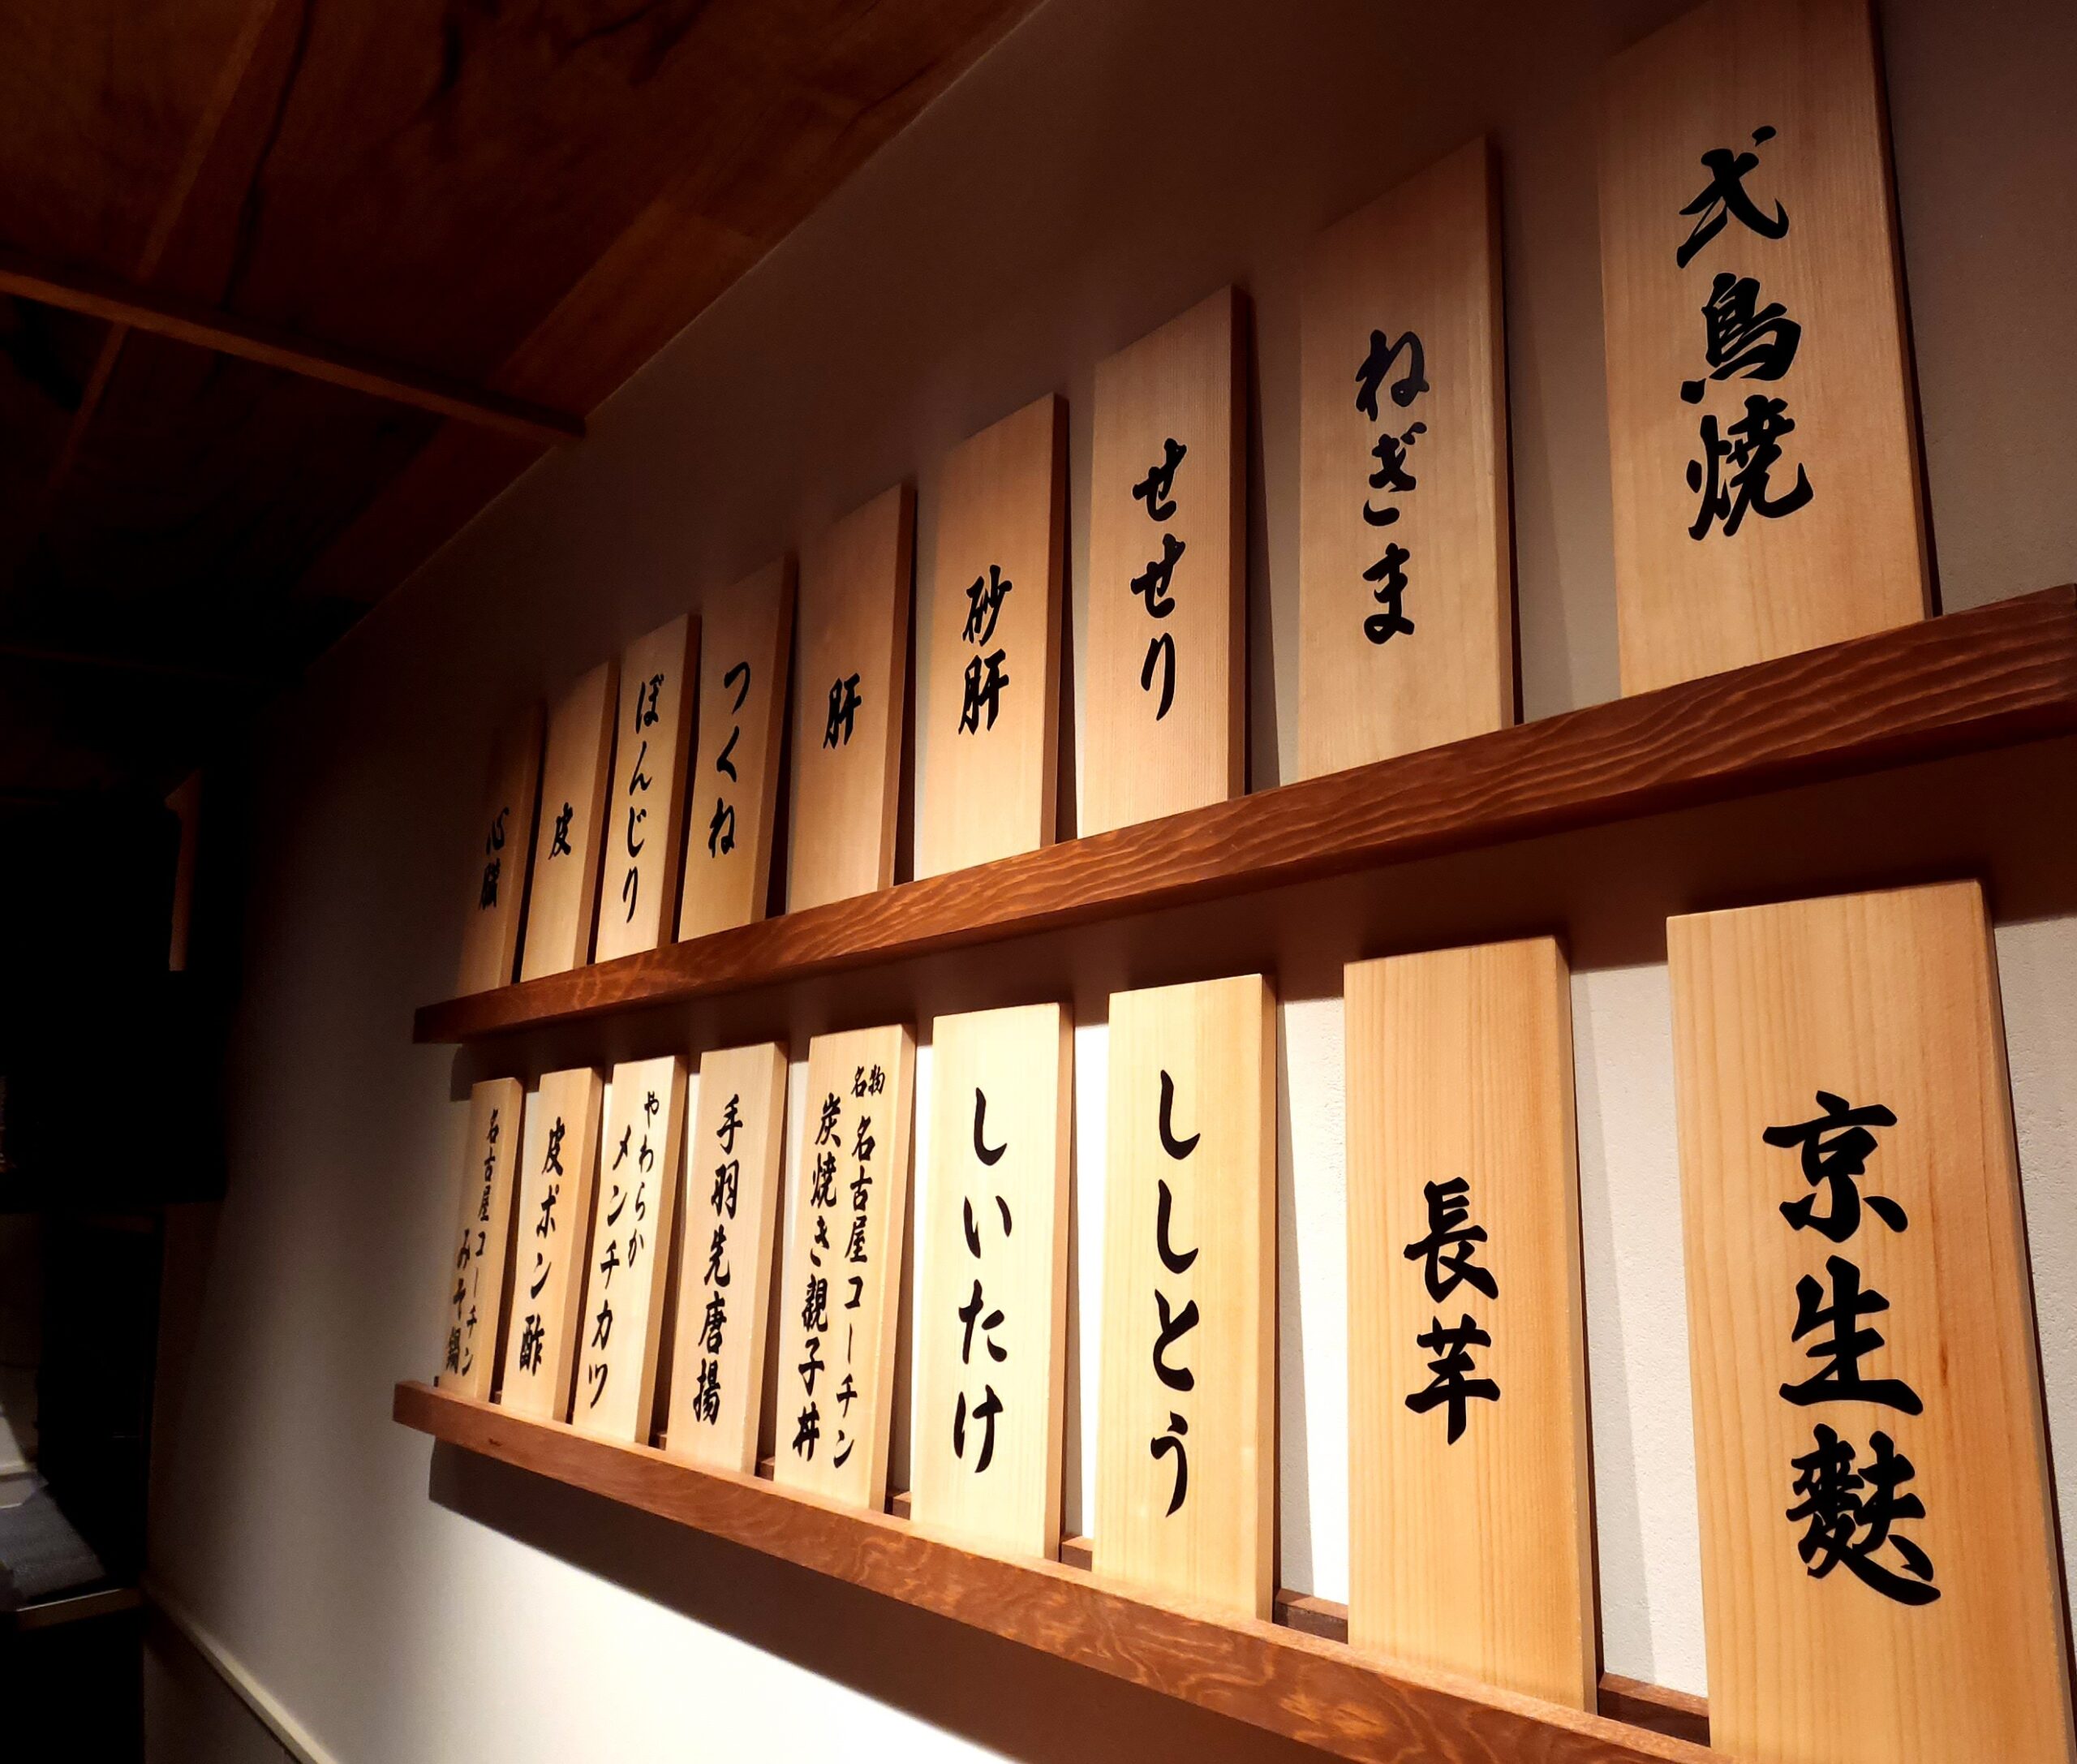 弍鳥焼
ねぎま
せせり
砂肝
肝
つくね
ぼんじり
皮
心臓
京生麩
長芋
ししとう
しいたけ
名物 名古屋コーチン
炭焼き親子丼
手羽先唐揚
やわらか
メンチカツ
皮ポン酢
名古屋コーチン
みそ鍋